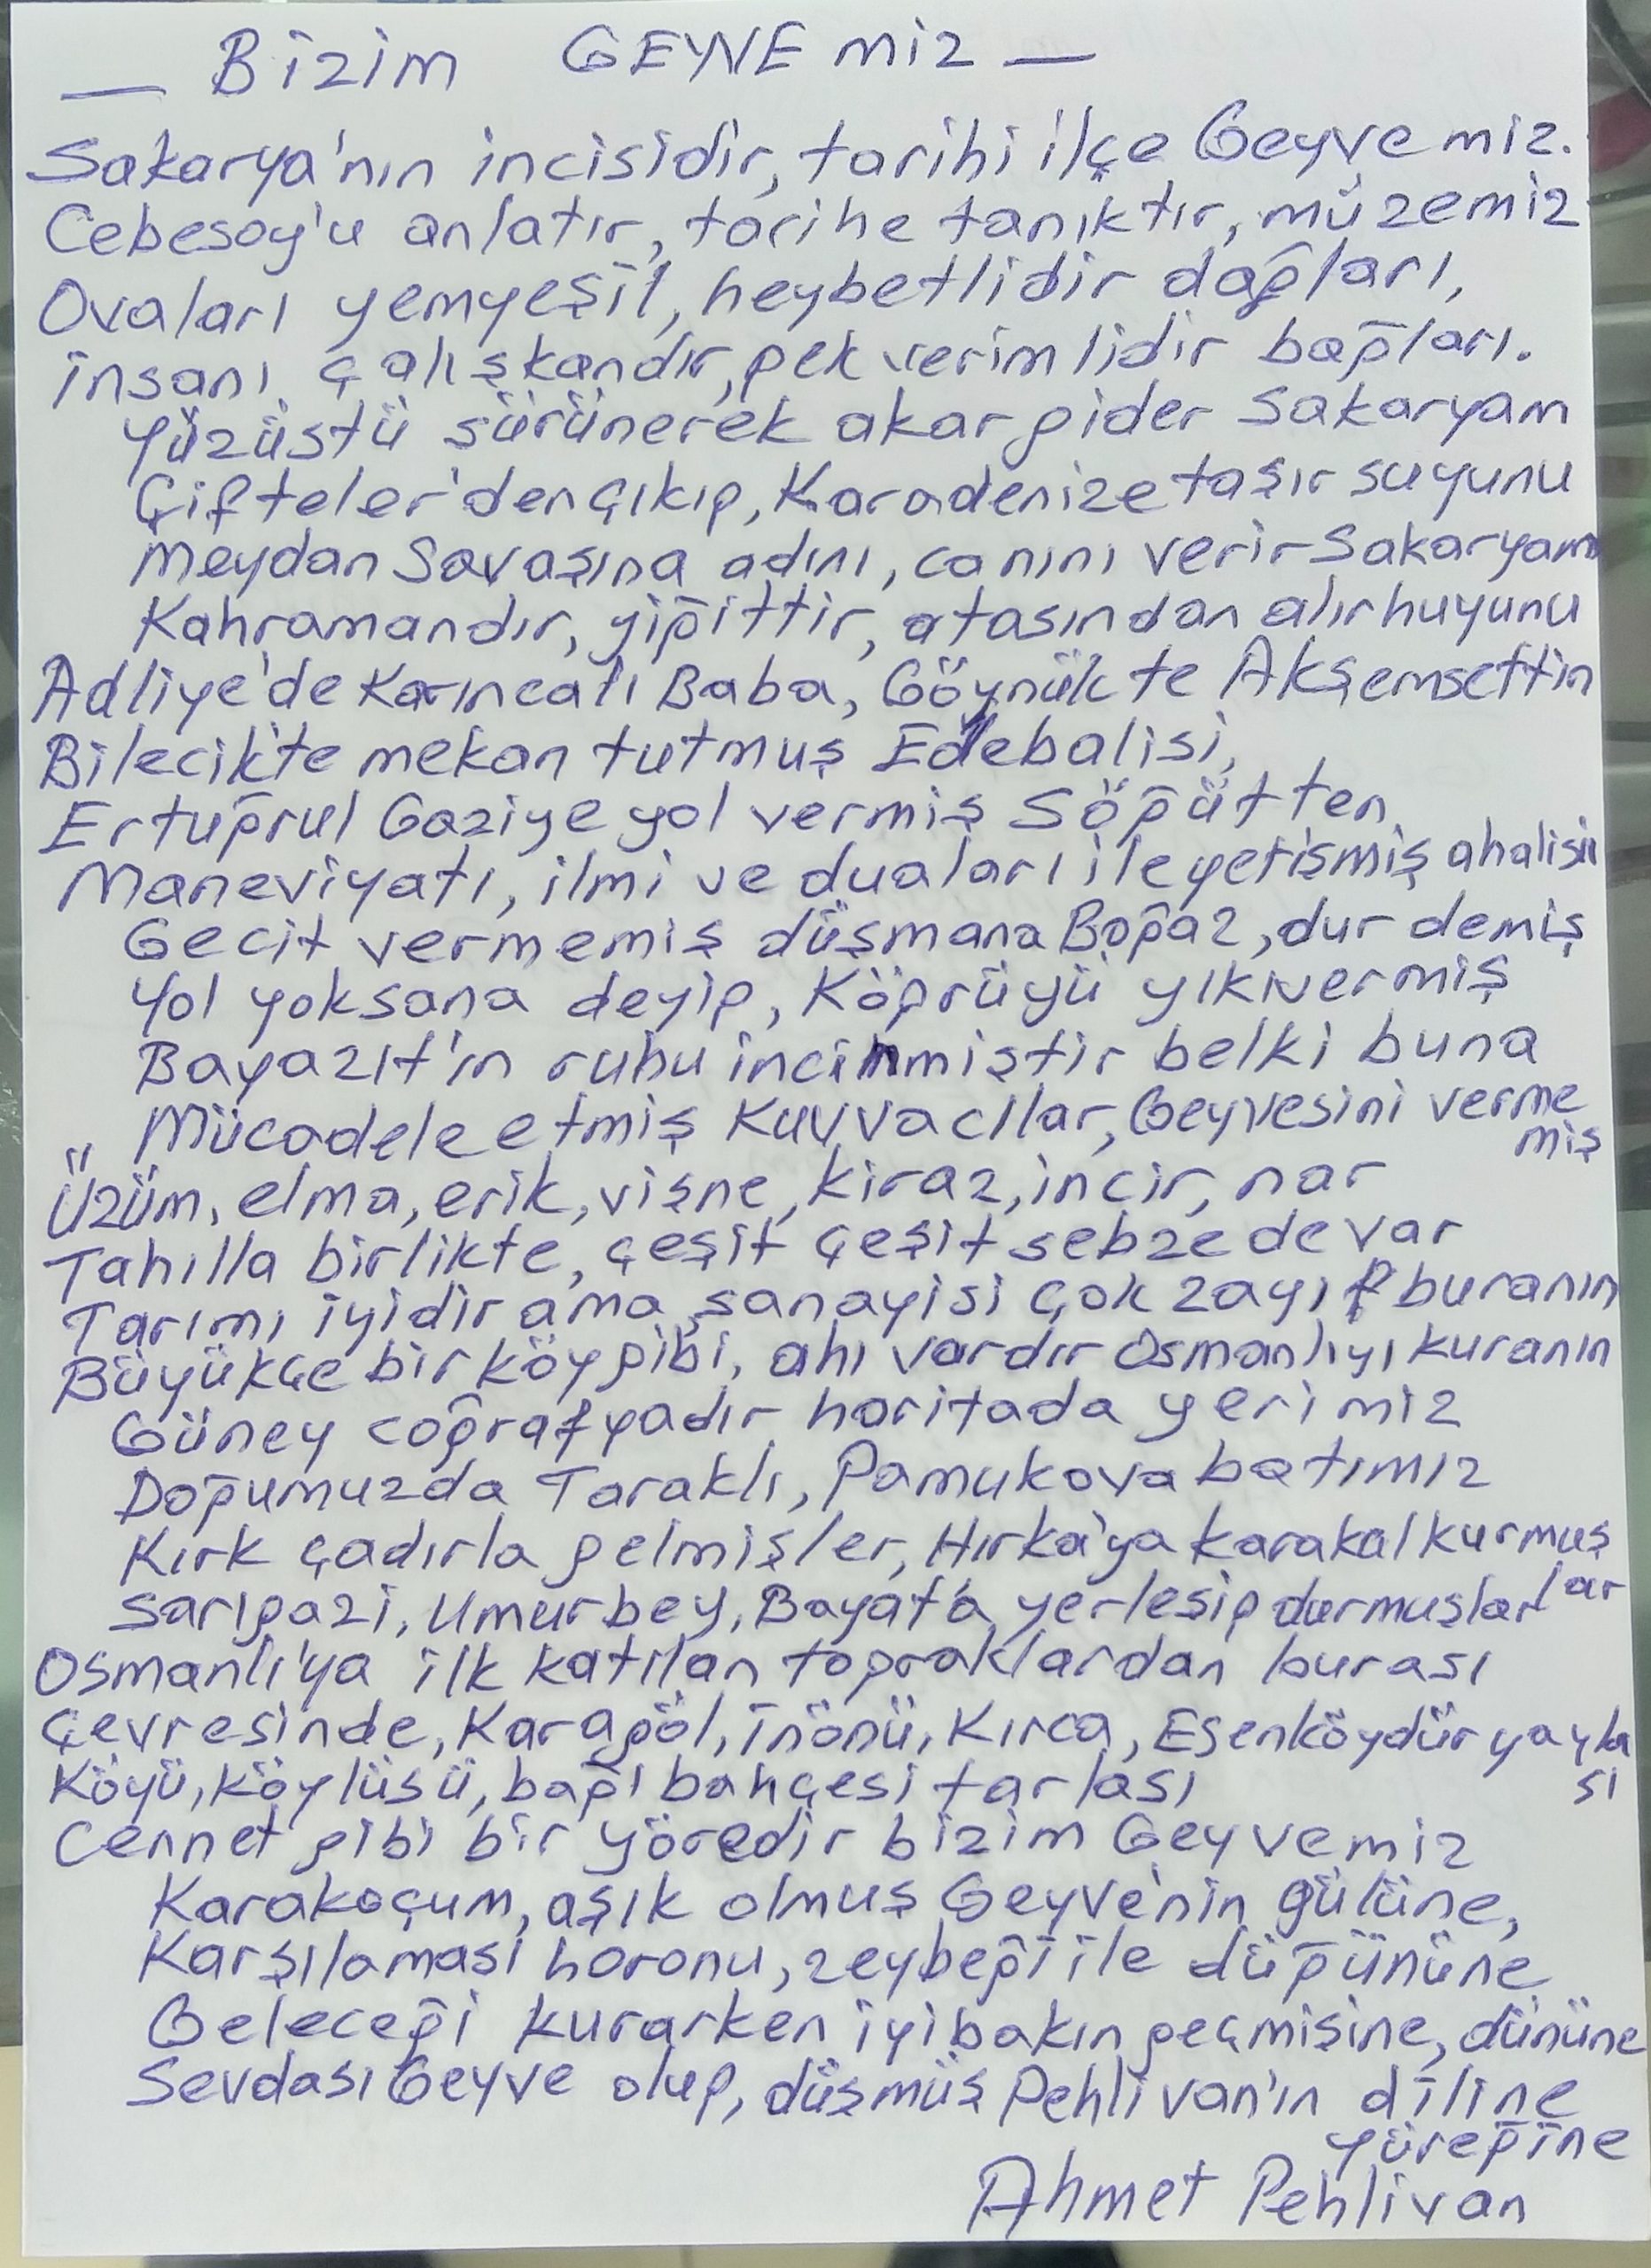 — Bizim GEYVE miz —
Sakarya'nın incisidir, tarihi ilçe Geyve miz.
Cebesoy'u anlatır, tarihe tanıktır, müzemiz
Ovaları yemyeşil, heybetlidir dağları,
insanı çalışkandır, pek verimlidir bağları.
Yüzüstü sürünerek akar gider Sakaryam
Çifteler'den çıkıp, Karadenize taşır suyunu
Meydan Savaşına adını, canını verir Sakaryam
Kahramandır, yiğittir, atasından alır huyunu
Adliye'de Karıncalı Baba, Göynük te Akşemsettin
Bilecik'te mekan tutmuş Edebalisi,
Ertuğrul Gaziye yol vermiş Söğüt ten
Maneviyatı, ilmi ve duaları ile yetişmiş ahalisi
Gecit vermemiş düşmana Boğaz, dur demiş
Yol yoksana deyip, Köprüyü yıkıvermiş
Bayazıt'ın ruhu incinmiştir belki buna
Mücadele etmiş Kuvvacılar, Geyvesini verme
miş
Üzüm, elma, erik, vişne, kiraz, incir, nar
Tahılla birlikte, çeşit çeşit sebze de var
Tarımı iyidir ama, sanayisi çok zayıf buranın
Büyükçe bir köy gibi, ahı vardır Osmanlıyı kuranın
Güney coğrafyadır haritada yerimiz
Doğumuzda Taraklı, Pamukova batımız
Kırk çadırla gelmişler, Hırka'ya karakol kurmuş
lar
Sarıgazi, Umurbey, Bayat'a yerleşip durmuşlar
Osmanlı'ya ilk katılan topraklardan burası
Çevresinde, Karagöl, İnönü, Kırca, Esenköydür yayla
sı
Köyü, köylüsü, bağı bahçesi tarlası
Cennet gibi bir yöredir bizim Geyvemiz
Karakoçum, aşık olmuş Geyve'nin gülüne,
Karşılaması horonu, zeybeği ile düğününe
Geleceği kurarken iyi bakın geçmişine, dününe
Sevdası Geyve olup, düşmüş Pehlivan'ın diline
yüreğine
Ahmet Pehlivan